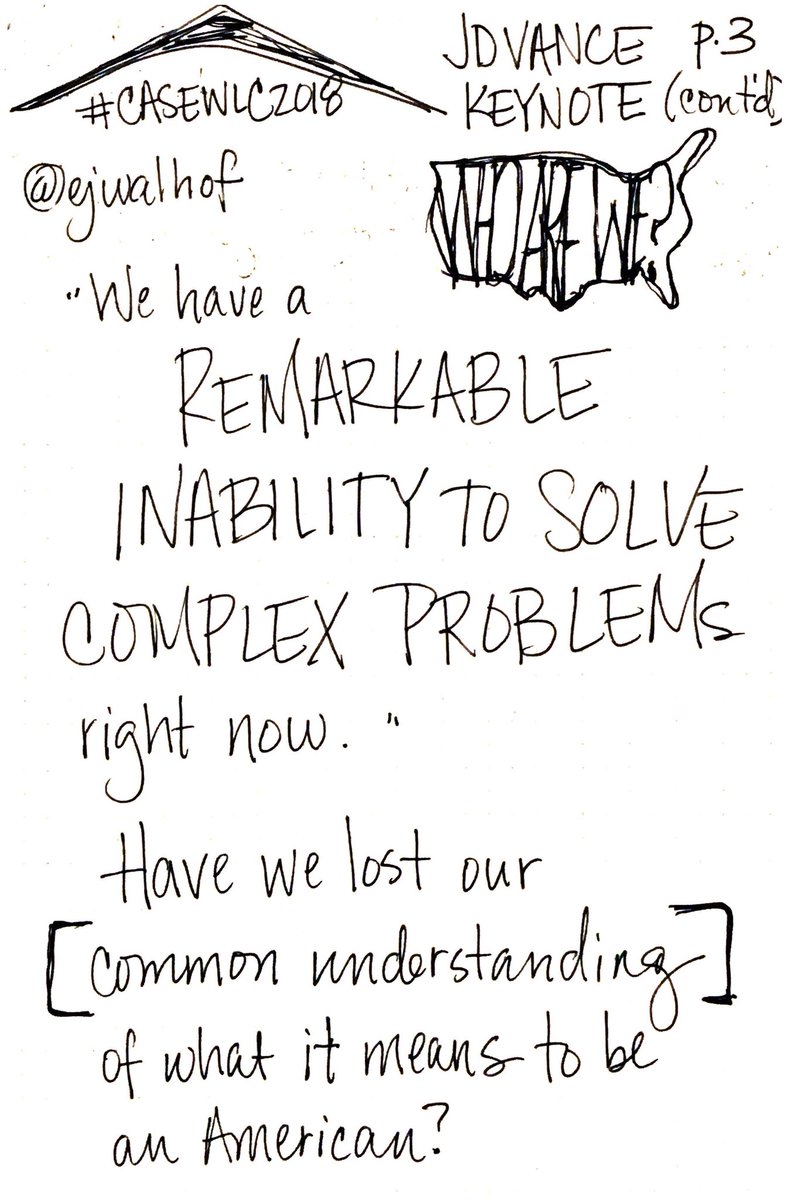 #CASEWLC2018
@ejwalhof
JDVANCE P.3
KEYNOTE (cont'd)
WHO ARE WE?
"We have a
REMARKABLE
INABILITY TO SOLVE
COMPLEX PROBLEMS
right now."
Have we lost our
[common understanding]
of what it means to be
an American?